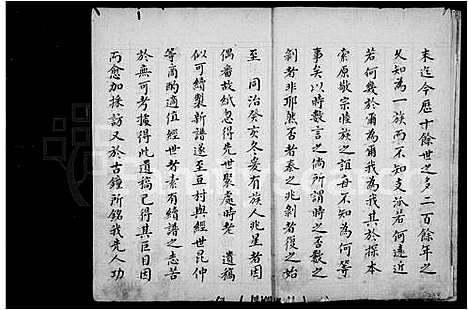 來迄今歷十餘世之多二百餘年之
久知為一族而不知支派若何遠近
若何幾於爾為爾我為我其於探本
索原敬宗睦族之誼每不知為何等
事矣以時數言之倘所謂時之否數之
剝者非耶然否者泰之兆剝者復之始
至 同治癸亥冬爰有族人兆星者因
偶番故紙忽得先世聚處時墊 遺稿
似可續製新譜遂至豆村與經世昆仲
等商酌適值經世者素有續譜之志苦
於無可考據得此遺稿已得其巨目因
而愈加採訪又於古鐘所銘我先人功